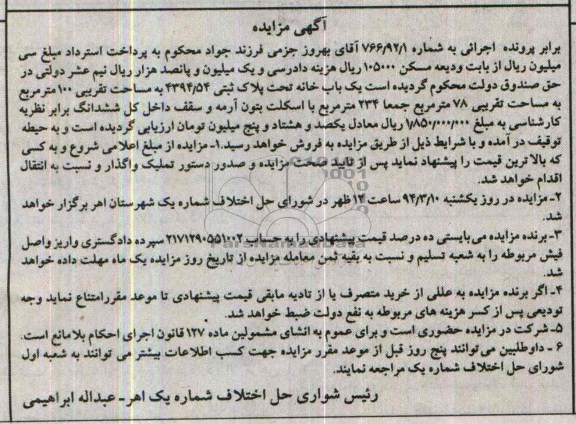 آگهی مزایده
برابر پرونده اجرائی به شماره ۷۶۶/۹۲/۱ آقای بهروز جزمی فرزند جواد محکوم به پرداخت استرداد مبلغ سی
میلیون ریال از بابت ودیعه مسکن ۱۰۵۰۰۰ ریال هزینه دادرسی و یک میلیون و پانصد هزار ریال نیم عشر دولتی در
حق صندوق دولت محکوم گردیده است یک باب خانه تحت پلاک ثبتی ۴۳۹۴/۵۴ به مساحت تقریبی ۱۰۰ مترمربع
به مساحت تقریبی ۷۸ مترمربع جمعا ۲۳۴ مترمربع با اسکلت بتون آرمه و سقف داخل کل ششدانگ برابر نظریه
کارشناسی به مبلغ ۱/۸۵۰/۰۰۰/۰۰۰ ریال معادل یکصد و هشتاد و پنج میلیون تومان ارزیابی گردیده است و به حیطه
توقیف در آمده و با شرایط ذیل از طریق مزایده به فروش خواهد رسید.۱- مزایده از مبلغ اعلامی شروع و به کسی
که بالا ترین قیمت را پیشنهاد نماید پس از تایید صحت مزایده و صدور دستور تملیک واگذار و نسبت به انتقال
اقدام خواهد شد.
۲- مزایده در روز یکشنبه ۹۴/۳/۱۰ ساعت ۱۲ ظهر در شورای حل اختلاف شماره یک شهرستان اهر برگزار خواهد
شد.
۳- برنده مزایده می بایستی ده درصد قیمت پیشنهادی را به حساب ۲۱۷۱۲۹۰۵۵۱۰۰۲ سپرده دادگستری واریز واصل
فیش مربوطه را به شعبه تسلیم و نسبت به بقیه ثمن معامله مزایده از تاریخ روز مزایده یک ماه مهلت داده خواهد
شد.
۴- اگر برنده مزایده به عللی از خرید متصرف یا از تادیه مابقی قیمت پیشنهادی تا موعد مقرر امتناع نماید وجه
تودیعی پس از کسر هزینه های مربوطه به نفع دولت ضبط خواهد شد.
۵- شرکت در مزایده حضوری است و برای عموم به انشای مشمولین ماده ۱۲۷ قانون اجرای احکام بلامانع است.
۶ - داوطلبین می توانند پنج روز قبل از موعد مقرر مزایده جهت کسب اطلاعات بیشتر می توانند به شعبه اول
شورای حل اختلاف شماره یک مراجعه نمایند.
رئیس شواری حل اختلاف شماره یک اهر - عبداله ابراهیمی